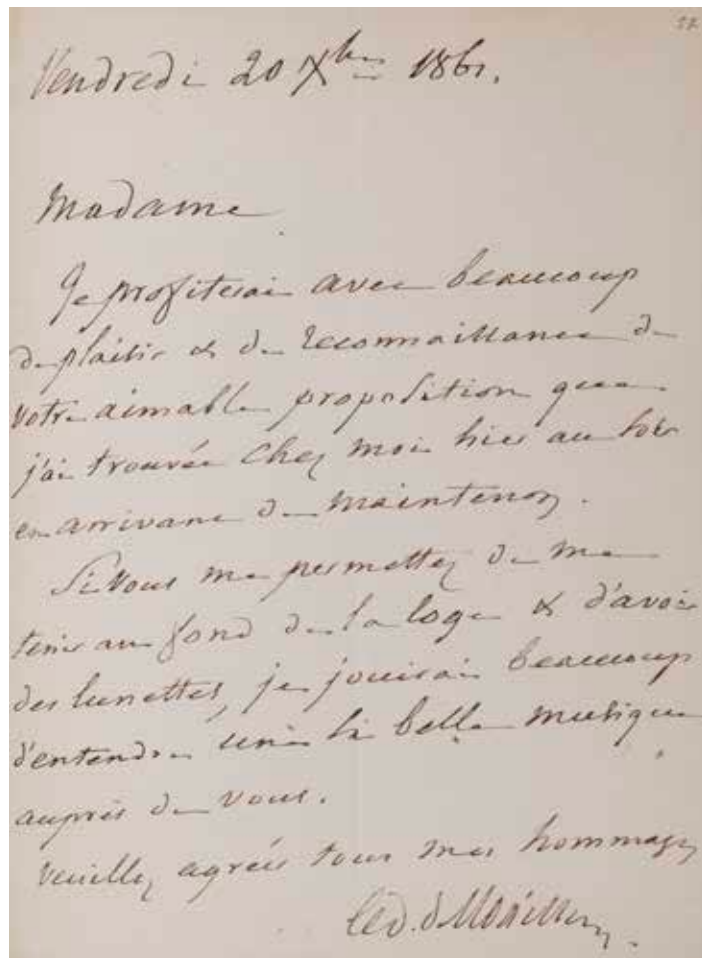 Vendredi 20 Xbre 1861.
Madame
Je profiterai avec beaucoup
de plaisir & de reconnaissance de
votre aimable proposition que
j'ai trouvée chez moi hier au soir
en arrivant de Maintenon.
Si vous me permettez de me
tenir au fond de la loge & d'avoir
des lunettes, je jouirai beaucoup
d'entendre une si belle musique
auprès de vous.
Veuillez agréer tous mes hommages